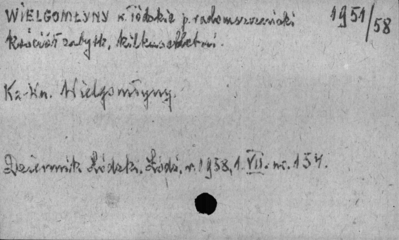 WIELGOMŁYNY w. łódzkie p. radomszczański
1951/58
Kościół zabytk., kilkusetletni.
Ks. Kn. Wielgomłyny.
Dziennik Łódzk., Łódź, r. 1958, 1. VII. nr. 154.